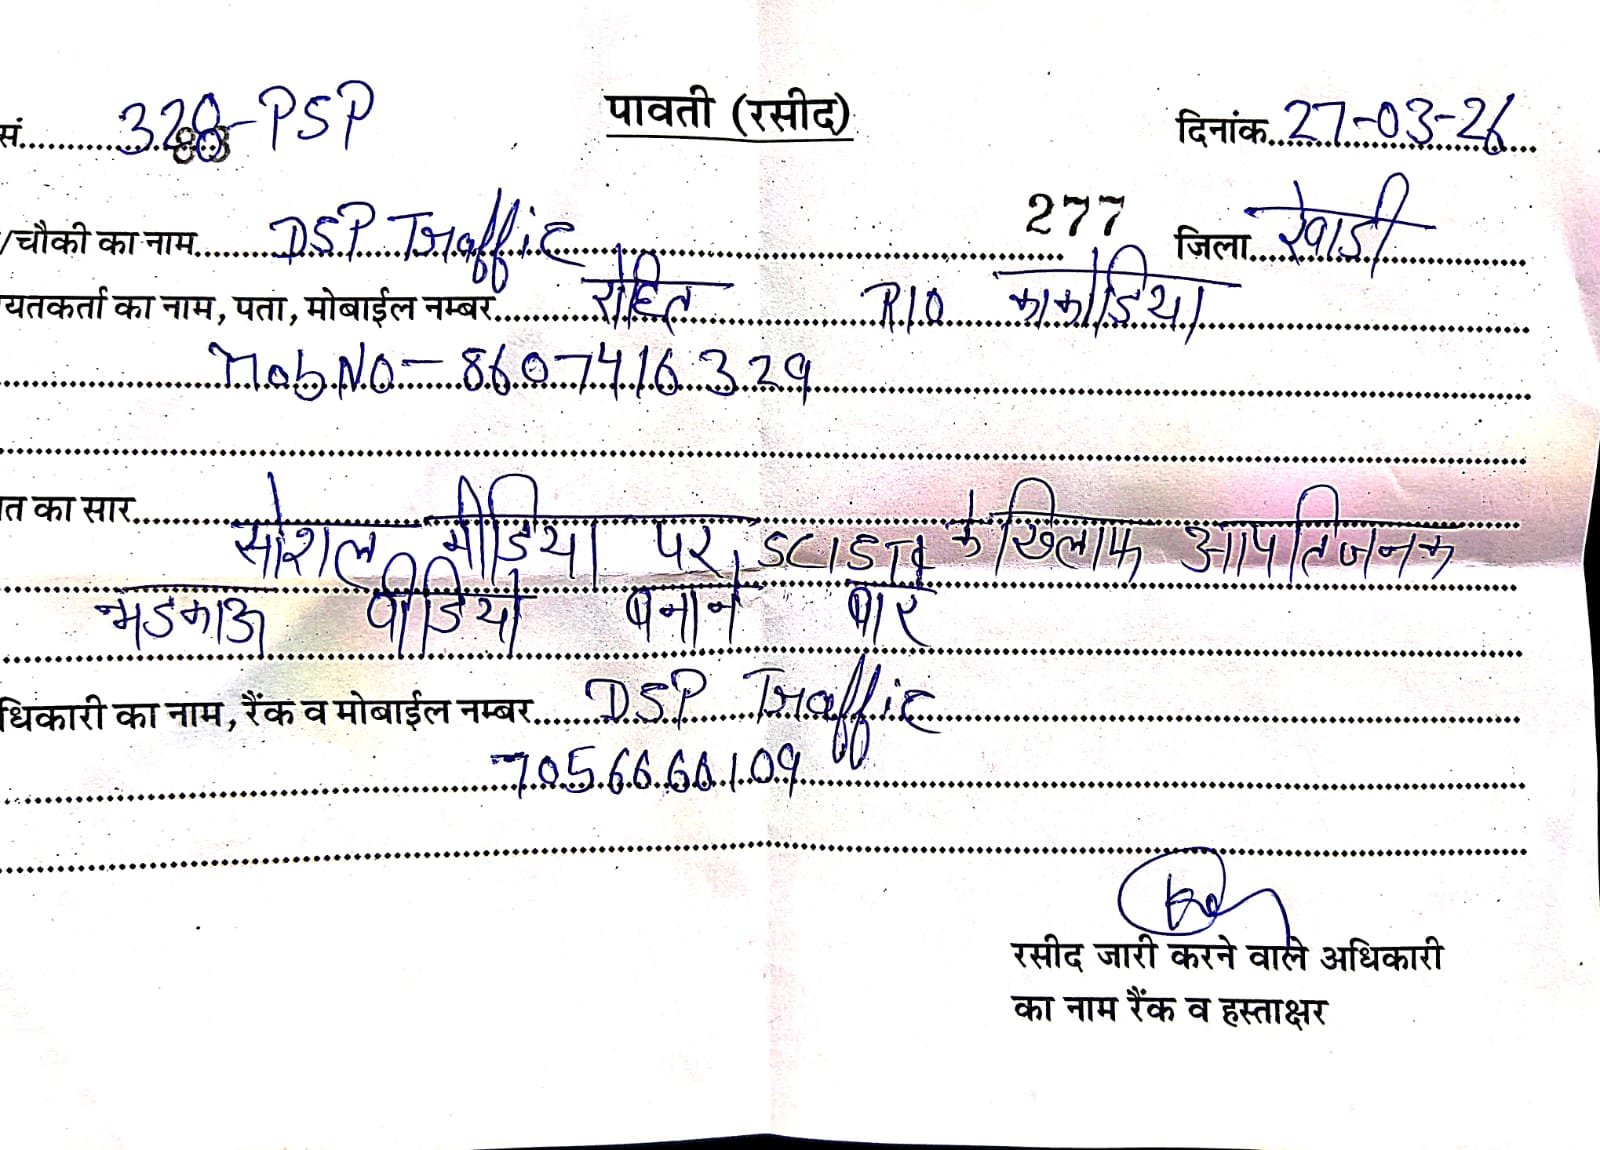 सं. 320-PSP पावती (रसीद) दिनांक 27-03-26
/चौकी का नाम DSP Traffic 277 जिला रेवाडी
यतकर्ता का नाम, पता, मोबाईल नम्बर रोहित R/O काकोडिया
Mob NO- 8607416329
त का सार
सोशल मीडिया पर के खिलाफ आपतिजनक
भडकाऊ वीडियो बनाने बारे
धिकारी का नाम, रैंक व मोबाईल नम्बर DSP Traffic
7056666109
रसीद जारी करने वाले अधिकारी
का नाम रैंक व हस्ताक्षर